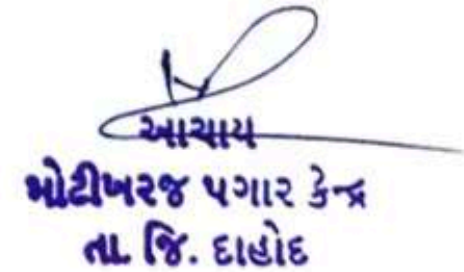 આચાય
મોટીખરજ પગાર કેન્દ્ર
તા. જિ. દાહોદ